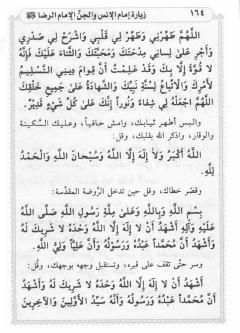 ١٦٤ زيارة إمام الإنس والجنّ الإمام الرضا
اللَّهُمَّ طَهِّرْنِي وَطَهِّرْ لِي قَلْبِي وَاشْرَحْ لِي صَدْرِي
وَأَجْرِ عَلَى لِسَانِي مِدْحَتَكَ وَمَحَبَّتَكَ وَالثَّنَاءَ عَلَيْكَ فَإِنَّهُ
لَا قُوَّةَ إِلَّا بِكَ وَقَدْ عَلِمْتُ أَنَّ قِوَامَ دِينِي التَّسْلِيمُ
لِأَمْرِكَ وَالِاتِّبَاعُ لِسُنَّةِ نَبِيِّكَ وَالشَّهَادَةُ عَلَى جَمِيعِ خَلْقِكَ
اللَّهُمَّ اجْعَلْهُ لِي شِفَاءً وَنُوراً إِنَّكَ عَلَى كُلِّ شَيْءٍ قَدِيرٌ.
والبس أطهر ثيابك، وامش حافياً، وعليك السكينة
والوقار، واذكر الله بقلبك، وقل:
اللَّهُ أَكْبَرُ وَلَا إِلَهَ إِلَّا اللَّهُ وَسُبْحَانَ اللَّهِ وَالْحَمْدُ
لِلَّهِ.
وقصّر خطاك، وقل حين تدخل الرّوضة المقدّسة:
بِسْمِ اللَّهِ وَبِاللَّهِ وَعَلَى مِلَّةِ رَسُولِ اللَّهِ صَلَّى اللَّهُ
عَلَيْهِ وَآلِهِ أَشْهَدُ أَنْ لَا إِلَهَ إِلَّا اللَّهُ وَحْدَهُ لَا شَرِيكَ لَهُ
وَأَشْهَدُ أَنَّ مُحَمَّداً عَبْدُهُ وَرَسُولُهُ وَأَنَّ عَلِيّاً وَلِيُّ اللَّهِ.
وسر حتّى تقف على قبره، وتستقبل وجهه بوجهك، وقُل:
أَشْهَدُ أَنْ لَا إِلَهَ إِلَّا اللَّهُ وَحْدَهُ لَا شَرِيكَ لَهُ وَأَشْهَدُ
أَنَّ مُحَمَّداً عَبْدُهُ وَرَسُولُهُ وَأَنَّهُ سَيِّدُ الْأَوَّلِينَ وَالْآخِرِينَ